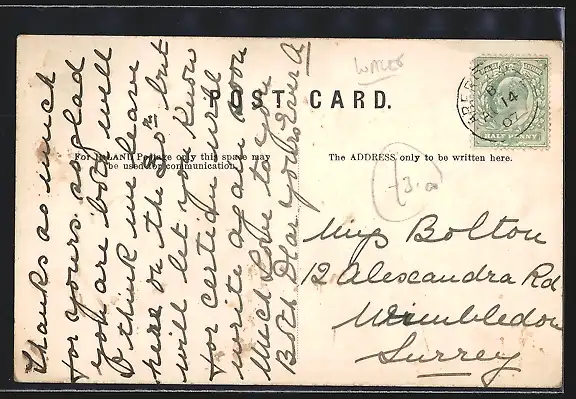 WALES
POST CARD.
For INLAND Postage only this space may
be used for communication.
The ADDRESS only to be written here.
HALF PENNY
14
07
Thanks so much
for yours. so glad
you are both well
I think we leave
here on the 20th but
will let you know
for certain. will
write again soon
Much Love to you
Both Dear yours Ever A
Miss Bolton
12 Alescandra Rd
Wimbledon
Surrey